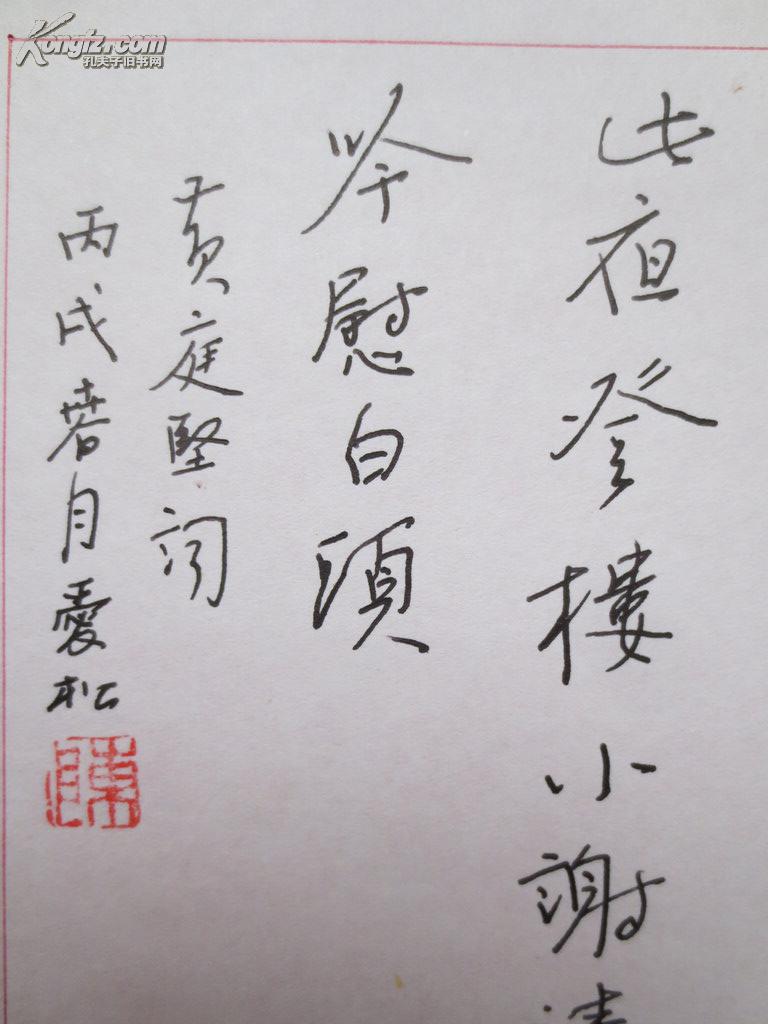 Kongfz.com
孔夫子旧书网
此夜登樓小謝清
吟慰白頭
黃庭堅詞
丙戌春月愛松
陳